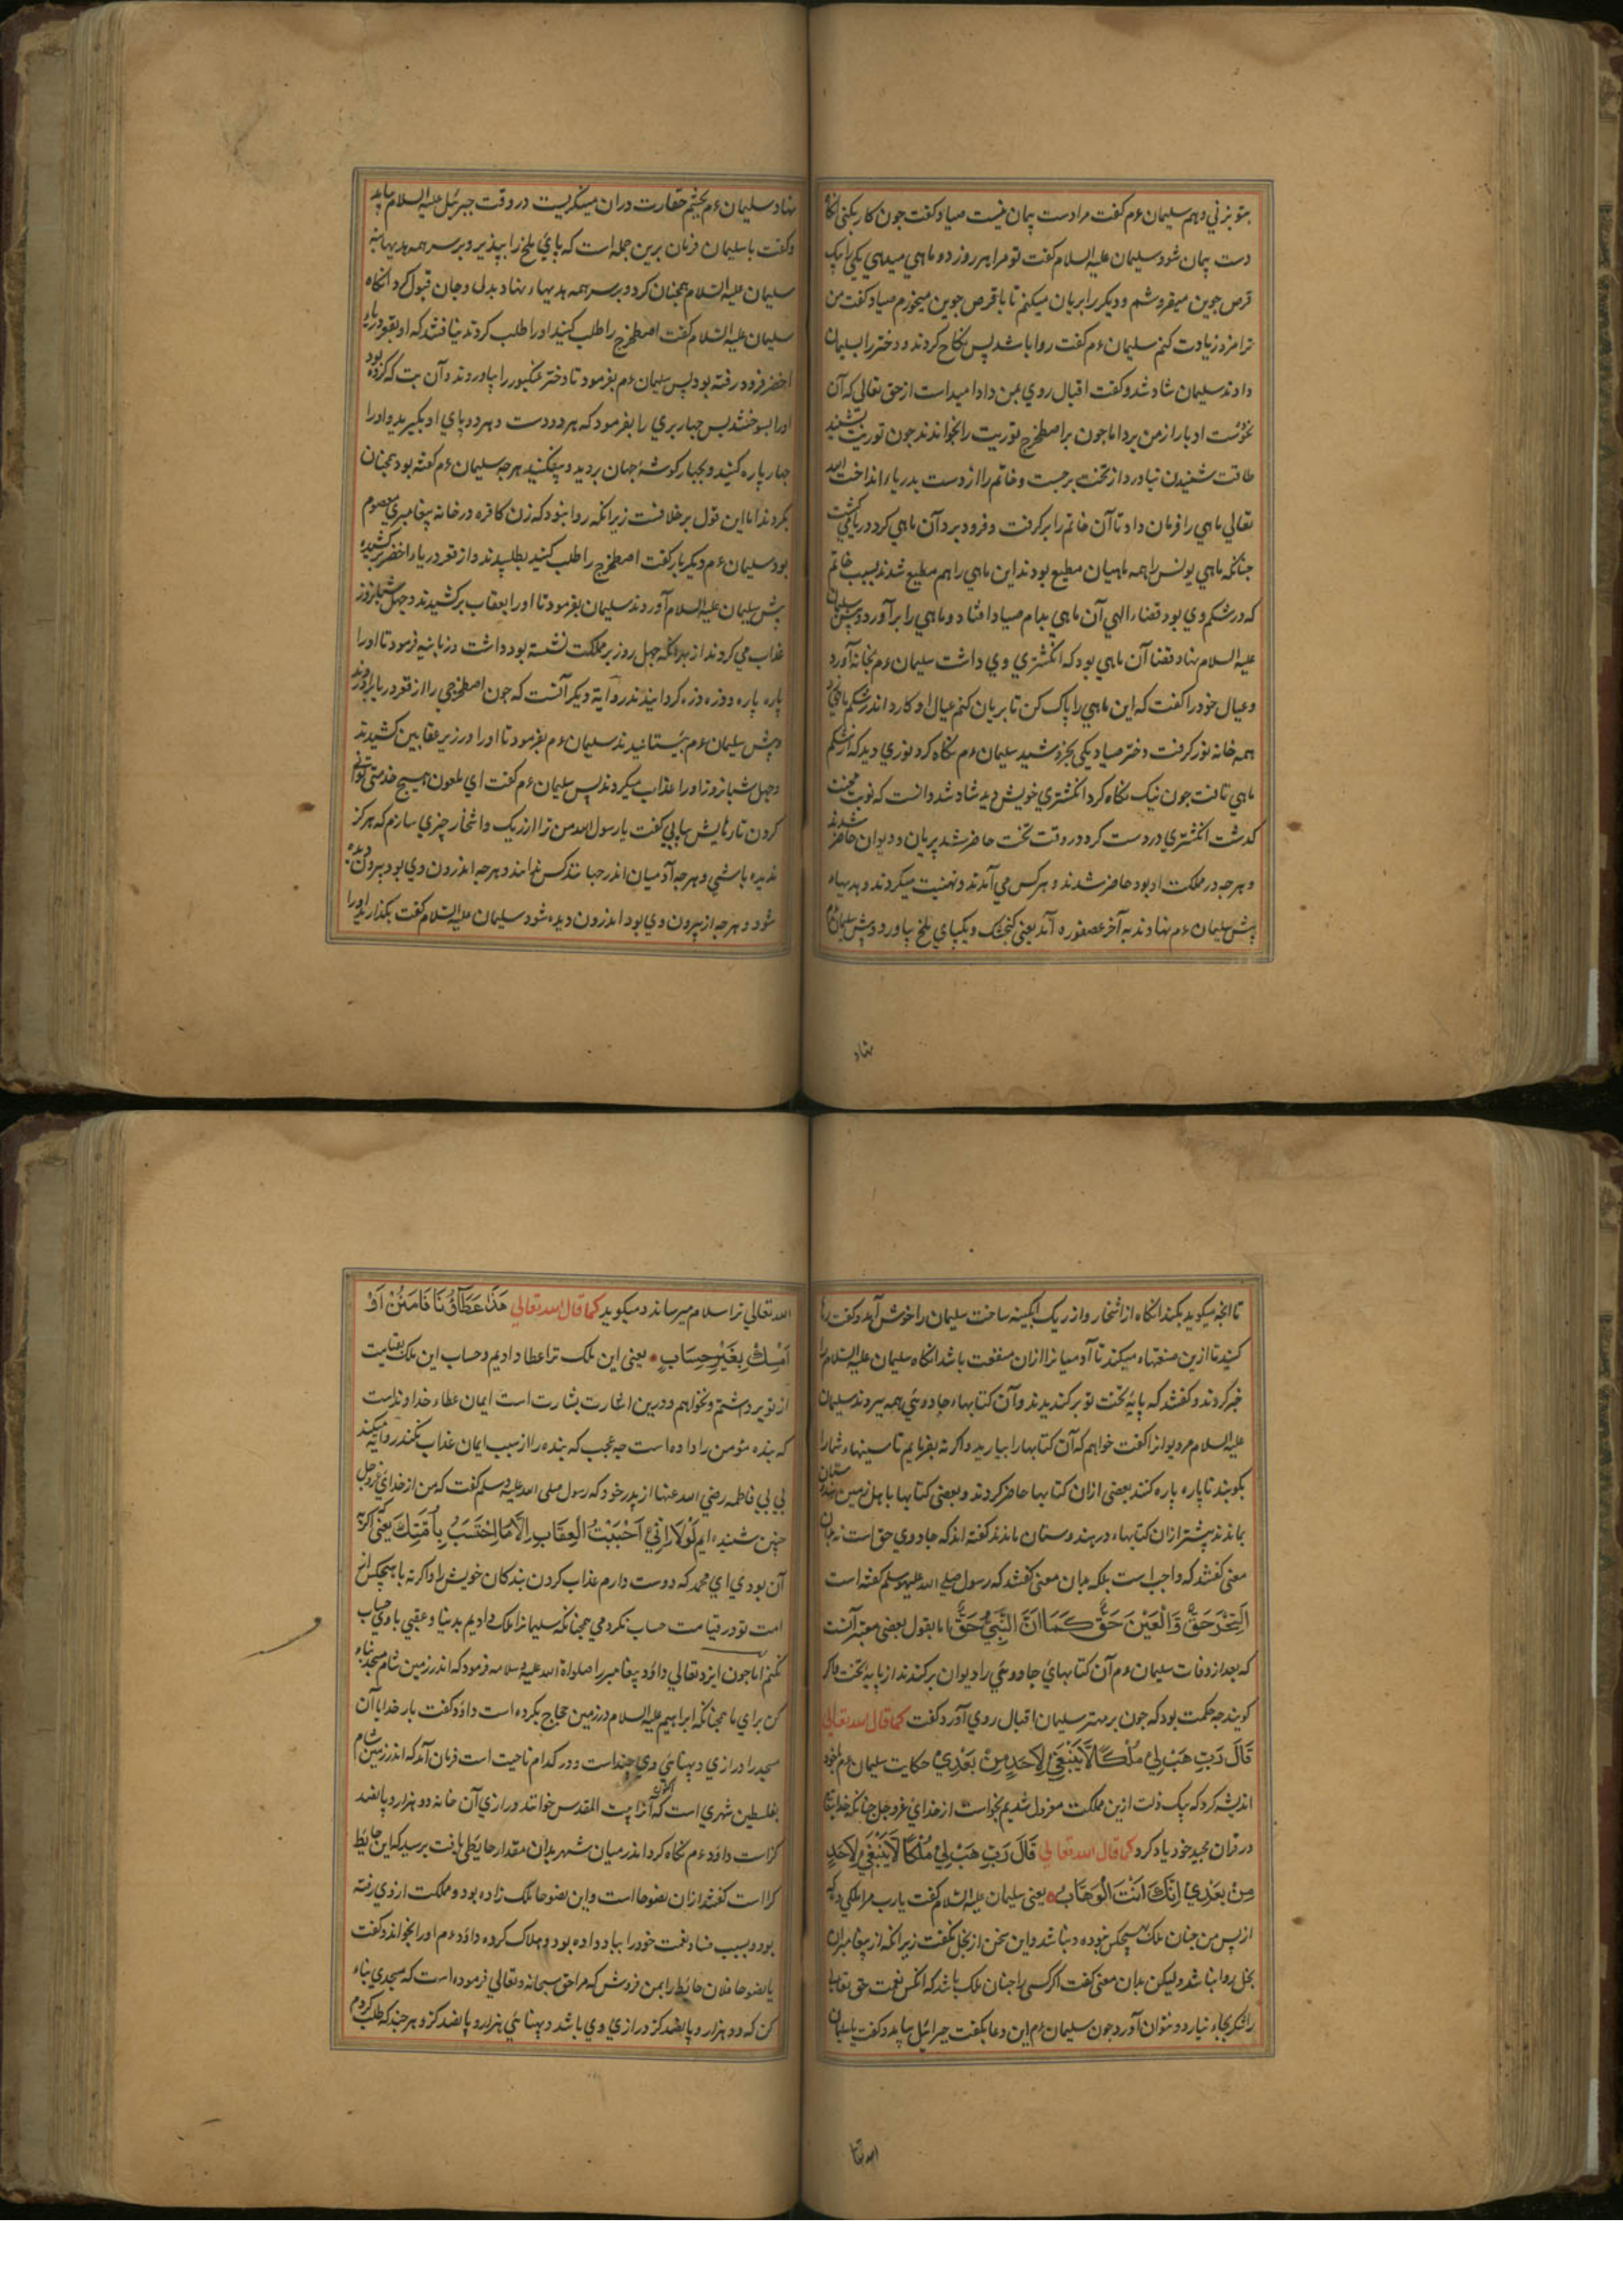 بتو بزنی دهم سلیمان ءم کفت مرا دست پیمان نیست صیاد کفت جون کار بکنی انکاه
دست پیمان شود سلیمان علیه السلام کفت تو مرا هر روز دو ماهی میدهی یکی را بیک
قرص جوین میفروشم و دیکر را بریان میکنم تا با قرص جوین میخورم صیاد کفت من
ترا مزد زیادت کنم سلیمان ءم کفت روا باشد پس نکاح کردند و دختر را بسلیمان
دادند سلیمان شاد شد و کفت اقبال روی بمن داد امید است از حق تعالی که آن
نحوست ادبار از من برد اما جون بر اصطخرج توریت را بخواندند جون توریت بشنید
طاقت شنیدن نیاورد از تخت برجست و خاتم را از دست بدریا انداخت الله
تعالی ماهی را فرمان داد تا آن خاتم را برکرفت و فرو برد آن ماهی کرد دریا می کشت
جنانکه ماهی یونس را همه ماهیان مطیع بودند این ماهی را هم مطیع شدند بسبب خاتم
که در شکم وی بود قضاء الهی آن ماهی بدام صیاد افتاد و ماهی را برآورد و پیش سلیمان
علیه السلام نهاد قضا آن ماهی بود که انکشتری وی داشت سلیمان ءم بخانه آورد
و عیال خود را کفت که این ماهی را پاک کن تا بریان کنم عیال او کارد اندر شکم ماهی زد
همه خانه نور کرفت دختر صیاد یکی بخروشید سلیمان ءم نکاه کرد نوری دید که از شکم
ماهی تافت جون نیک نکاه کرد انکشتری خویش دید شاد شد دانست که نوبت محنت
کذشت انکشتری در دست کرد در وقت تخت حاضر شد پریان و دیوان حاضر شدند
و هرجه در مملکت او بود حاضر شدند و هر کس می آمدند و تهنیت میکردند و هدیهاء
پیش سلیمان ءم نهادند به آخر عصفوره آمد یعنی کنجشک و یکپای ملخ بیاورد و پیش سلیمان
نهاد
نهاد سلیمان ءم بجشم حقارت دران مینکریست در وقت جبرئیل علیه السلام بیامد
و کفت یا سلیمان فرمان برین جمله است که پای ملخ را بپذیر و بر سر همه هدیها بنه
سلیمان علیه السلام همجنان کرد و بر سر همه هدیهاء نهاد و بدل و جان قبول کرد انکاه
سلیمان علیه السلام کفت اصطخرج را طلب کنید او را طلب کردند نیافتند که او بقعر دریاء
اخضر فرو رفته بود پس سلیمان ءم بفرمود تا دختر عنکبور را بیاوردند و آن بت که کرده بود
او را بسوختند پس جهار پری را بفرمود که هر دو دست و هر دو پای او بکیرید و او را
جهار پاره کنید و بجهار کوشۀ جهان برید و بیفکنید هرجه سلیمان ءم کفته بود همجنان
بکردند اما این قول بر خلافست زیرانکه روا نبود که زن کافره در خانه پیغامبری معصوم
بود سلیمان ءم دیکر بار کفت اصطخرج را طلب کنید بطلبیدند و از قعر دریاء اخضر برکشیده
پیش سلیمان علیه السلام آوردند سلیمان بفرمود تا او را بعقاب برکشیدند و جهل شبانروز
عذاب می کردند از بهر انکه جهل روز بر مملکت نشسته بود داشت و زبانیه فرمود تا او را
پاره پاره و ذره ذره کردانیدند در روایة دیکر آنست که جون اصطخرجی را از قعر دریا برآوردند
و پیش سلیمان ءم بیستانیدند سلیمان ءم بفرمود تا او را در زیر عقابین کشیدند
و جهل شبانروز او را عذاب میکردند پس سلیمان ءم کفت ای ملعون هیج خدمتی توانی
کردن تا رهایش بیابی کفت یا رسول الله من ترا از ریک و اشخار جیزی سازم که هرکز
ندیده باشی و هرجه آدمیان اندر حیاتند کس نداند و هرجه اندرون وی بود بیرون دیده
شود و هرجه از بیرون وی بود اندرون دیده شود سلیمان علیه السلام کفت بکذارید او را
تا انجه میکوید بکند انکاه از اشخار و از ریک ابکینه ساخت سلیمان را خوش آمد و کفت رها
کنید تا ازین صنعتهاء میکند تا آدمیانرا ازان منفعت باشد انکاه سلیمان علیه السلام را
خبر کردند و کفتند که پایۀ تخت تو برکندیدند و آن کتابهاء جادوئی همه ببردند سلیمان
علیه السلام مر دیوانرا کفت خواهم که آن کتابها را بیارید و اکر نه بفرمایم تا سینهاء شما را
بکوبند تا پاره پاره کنند بعضی ازان کتابها حاضر کردند و بعضی کتابها باهل زمین هندوستان
بماندند بیشتر ازان کتابهاء در هندوستان ماندند کفته اند که جادوی حق است نه بدان
معنی کفتند که واجب است بلکه بدان معنی کفتند که رسول صلی الله علیه وسلم کفته است
اَلسِّحْرُ حَقٌّ وَالْعَيْنُ حَقٌّ كَمَا اَنَّ النَّبِيَّ حَقٌّ اما بقول بعضی معتبر آنست
که بعد از وفات سلیمان ءم آن کتابهای جادوئی را دیوان برکندند از پایۀ تخت و اکر
کویند جه حکمت بود که جون بر مهتر سلیمان اقبال روی آورد کفت کما قال الله تعالی
قَالَ رَبِّ هَبْ لِي مُلْكًا لَا يَنْبَغِي لِاَحَدٍ مِنْ بَعْدِي حکایت سلیمان ءم با خود
اندیشه کرد که بیک ذلت ازین مملکت معزول شدیم بخواست از خدای عز و جل جنانکه خدایتعا
در قران مجید خود یاد کرد کما قال الله تعالی قَالَ رَبِّ هَبْ لِي مُلْكًا لَا يَنْبَغِي لِاَحَدٍ
مِنْ بَعْدِي اِنَّكَ اَنْتَ الْوَهَّابُ یعنی سلیمان علیه السلام کفت یا رب مرا ملکی ده که
از پس من جنان ملک هیجکس نبوده و نباشد و این سخن از بخل نکفت زیرانکه از پیغامبران
بخل روا نباشد ولیکن بدان معنی کفت اکر کسی را جنان ملک باشد که انکس نعمت حق تعالی
را شکر بجاء نیارد و نتوان آورد جون سلیمان ءم این دعا بکفت جبرائیل بیامد و کفت یا سلیمان
الله تعا
الله تعالی ترا سلام میرساند و میکوید کما قال الله تعالی هَذَا عَطَآؤُنَا فَامْنُنْ اَوْ
اَمْسِكْ بِغَيْرِ حِسَابٍ یعنی این ملک ترا عطا دادیم و حساب این ملک بقیامت
از تو برداشتم و نخواهم و درین اشارت بشارت است ایمان عطاء خداوندست
که بنده مؤمن را داده است جه عجب که بنده را از سبب ایمان عذاب نکند روایة میکند
بی بی فاطمه رضی الله عنها از پدر خود که رسول صلی الله علیه وسلم کفت که من از خدای عز و جل
جنین شنیده ایم لَوْلَا اَنِّي اَحْبَبْتُ الْعِقَابَ اِلَّا مَا احْتَسَبَ بِاُمَّتِكَ یعنی اکر نه
آن بودی ای محمد که دوست دارم عذاب کردن بندکان خویش را و اکر نه با هیجکس از
امت تو در قیامت حساب نکردمی همجنانکه سلیمانرا ملک دادیم بدنیا و عقبی با وی حساب
نکنم اما جون ایزد تعالی داؤد پیغامبر را صلواة الله علیه و سلامه فرمود که اندر زمین شام مسجد بناء
کن برای ما همجنانکه ابراهیم علیه السلام در زمین حجاج بکرده است داؤد کفت بار خدایا آن
مسجد را درازی و پهنائی وی جند است و در کدام ناحیت است فرمان آمد که اندر زمین شام
بفلسطین شهری است که آنرا اکنون بیت المقدس خوانند درازی آن خانه دو هزار و پانصد
کز است داؤد ءم نکاه کرد اندر میان شهر بدان مقدار حایطی یافت پرسید که این حایط
کرا است کفتند ازان یضوحا است و این یضوحا ملک زاده بود و مملکت از وی رفته
بود و بسبب فساد نعمت خود را بباد داده بود و هلاک کرده داؤد ءم او را بخواند و کفت
یا یضوحا فلان حایط را بمن فروش که مرا حق سبحانه و تعالی فرموده است که مسجدی بناء
کن که دو هزار و پانصد کز درازی وی باشد و پهنائی هزار و پانصد کز و هرجند که طلب کردم